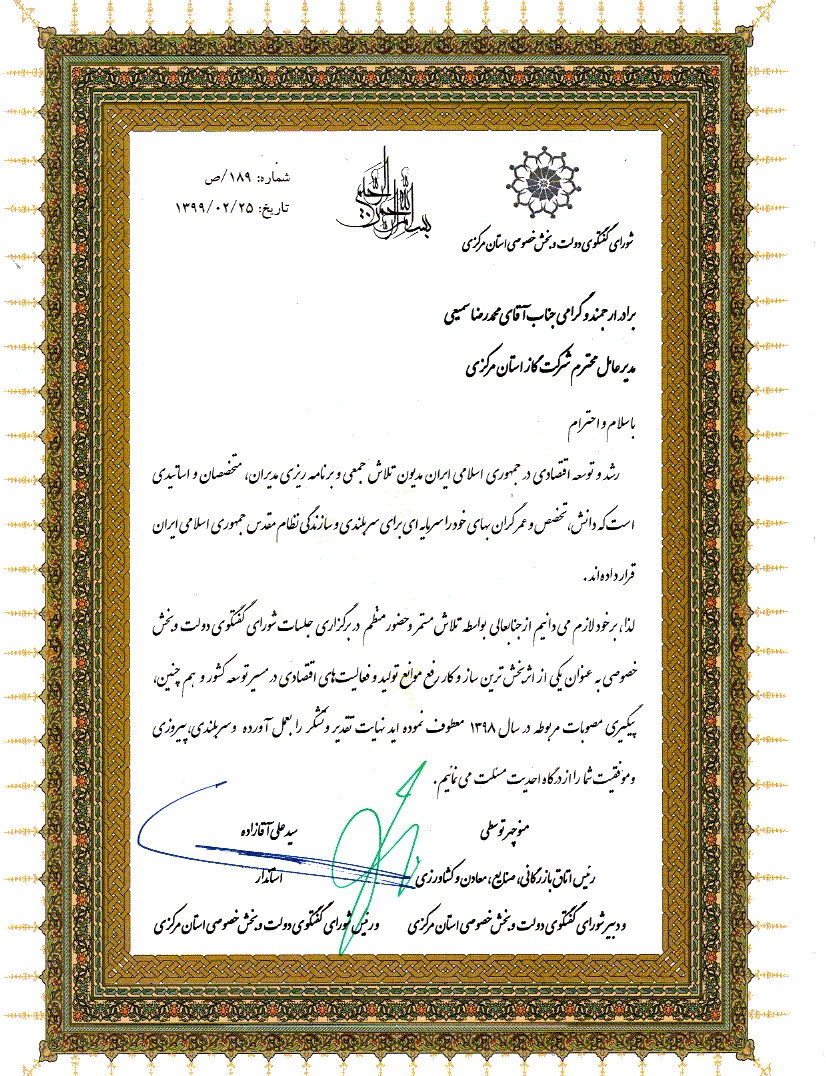 بسم الله الرحمن الرحیم
شماره: ۱۸۹/ص
تاریخ: ۱۳۹۹/۰۲/۲۵
شورای گفتگوی دولت و بخش خصوصی استان مرکزی
برادر ارجمند و گرامی جناب آقای محمدرضا سمیعی
مدیرعامل محترم شرکت گاز استان مرکزی
باسلام و احترام
رشد و توسعه اقتصادی در جمهوری اسلامی ایران مدیون تلاش جمعی و برنامه ریزی مدیران، متخصصان و اساتیدی
است که دانش، تخصص و عمر گران بهای خود را سرمایه ای برای سربلندی و سازندگی نظام مقدس جمهوری اسلامی ایران
قرار داده اند.
لذا، برخود لازم می دانیم از جنابعالی بواسطه تلاش مستمر و حضور منظم در برگزاری جلسات شورای گفتگوی دولت و بخش
خصوصی به عنوان یکی از اثربخش ترین ساز و کار رفع موانع تولید و فعالیت های اقتصادی در مسیر توسعه کشور و هم چنین،
پیگیری مصوبات مربوطه در سال ۱۳۹۸ معطوف نموده اید نهایت تقدیر و تشکر را بعمل آورده وسربلندی، پیروزی
وموفقیت شما را از درگاه احدیت مسئلت می نمائیم.
منوچهر توسطی
رئیس اتاق بازرگانی، صنایع، معادن و کشاورزی
و دبیر شورای گفتگوی دولت و بخش خصوصی استان مرکزی
سید علی آقازاده
استاندار
و رئیس شورای گفتگوی دولت و بخش خصوصی استان مرکزی